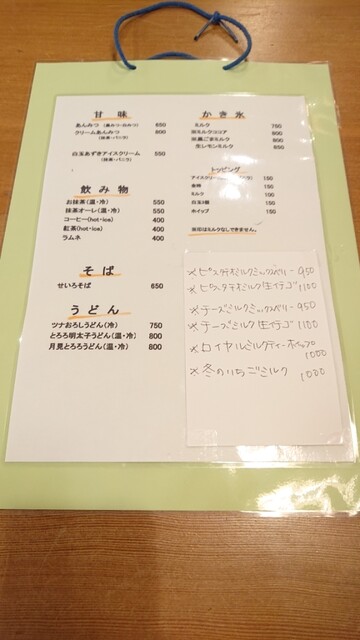 甘味
あんみつ（黒みつ・白みつ） 650
クリームあんみつ 800
（抹茶・バニラ）
白玉あずきアイスクリーム 550
（抹茶・バニラ）
飲み物
お抹茶（温・冷） 550
抹茶オーレ（温・冷） 550
コーヒー(hot・ice) 400
紅茶(hot・ice) 400
ラムネ 400
そば
せいろそば 650
うどん
ツナおろしうどん（冷） 750
とろろ明太子うどん（温・冷） 800
月見とろろうどん（温・冷） 800
かき氷
ミルク 750
ミルクココア 800
黒ごまミルク 800
生レモンミルク 850
トッピング
アイスクリーム 150
金時 150
ミルク 100
白玉3個 150
ホイップ 150
※印はミルクなしできません。
※ピスタチオミルクミックスベリー 950
※ピスタチオミルク生イチゴ 1100
※チーズミルクミックスベリー 950
※チーズミルク生イチゴ 1100
※ロイヤルミルクティーホイップ
1000
※冬のいちごミルク 1000